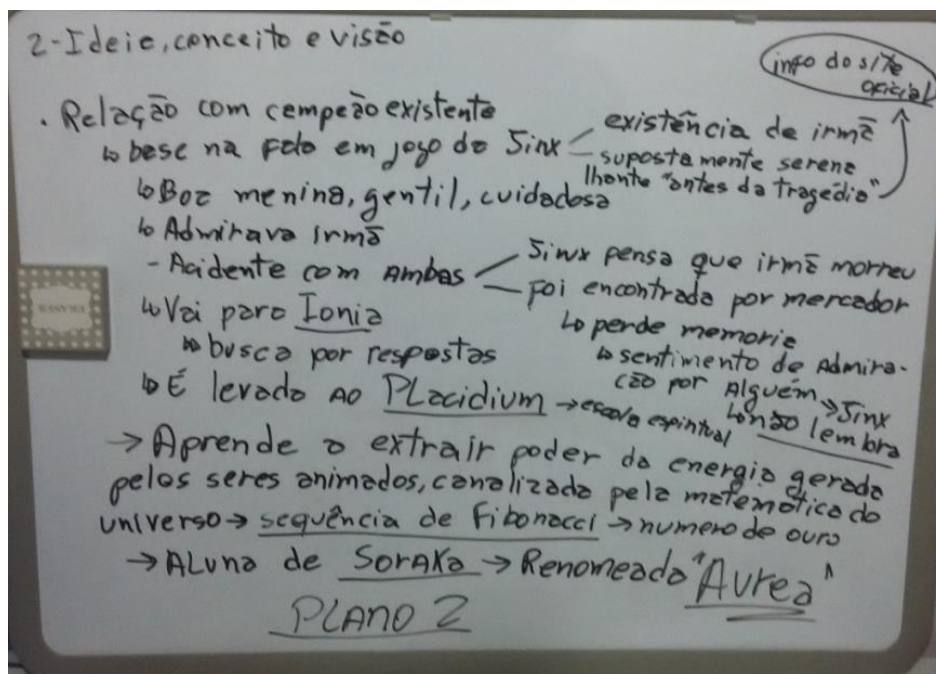 2-Ideia, conceito e visão
info do site oficial
. Relação com campeão existente
↳ base na fala em jogo da Jinx
existência de irmã
supostamente semelhante "antes da tragédia"
↳ Boa menina, gentil, cuidadosa
↳ Admirava irmã
- Acidente com Ambas
Jinx pensa que irmã morreu
foi encontrada por mercador
↳ perde memoria
↳ sentimento de Admiração por Alguém → Jinx
↳ não lembra
↳ Vai para Ionia
↳ busca por respostas
↳ É levada ao PLacidium → escola espiritual
→ Aprende a extrair poder da energia gerada
pelos seres animados, canalizada pela matemática do
universo → sequência de Fibonacci → numero de ouro
→ ALuna de SorAKa → Renomeada "Aurea"
PLANO 2